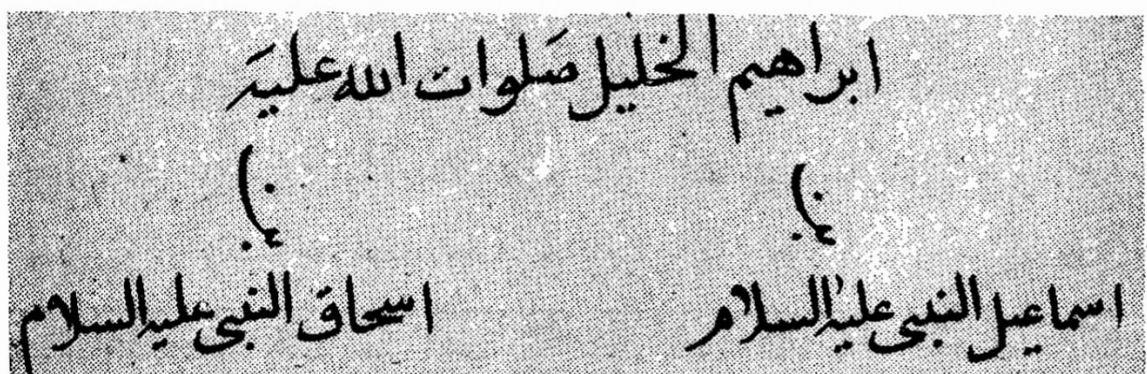 ابراهيم الخليل صَلوات الله عليَه
اسماعيل النبى عليه السلام
اسحاق النبى عليه السلام